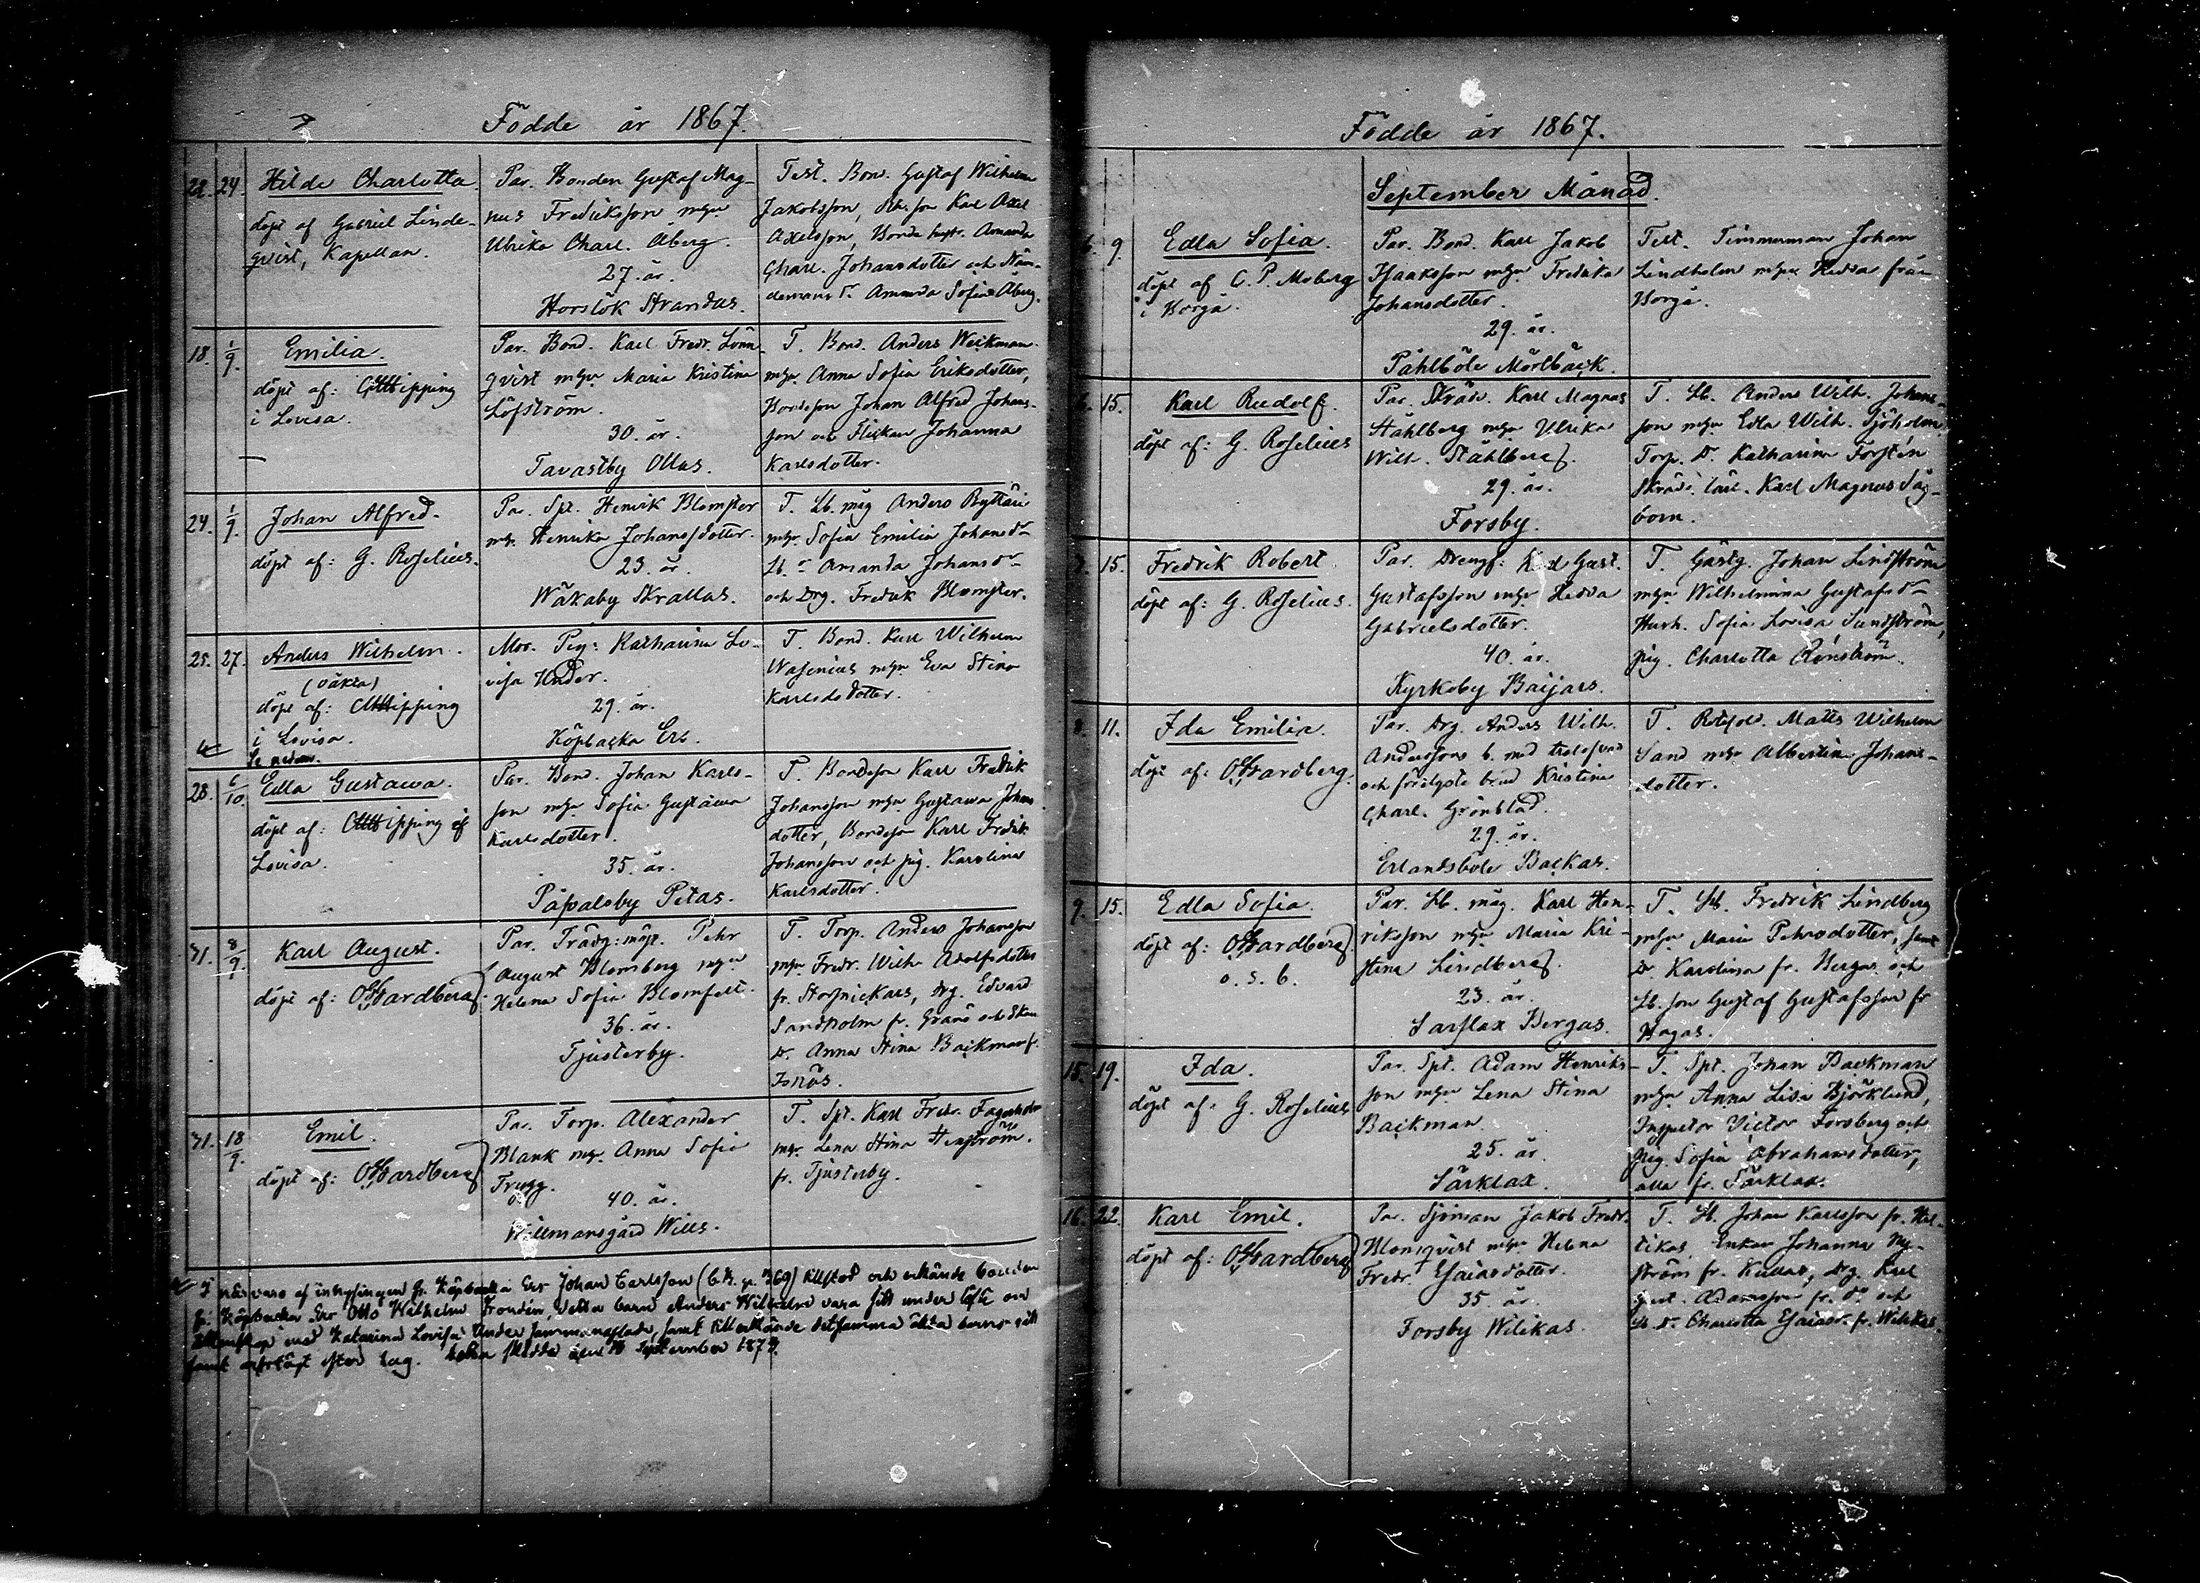 Födde år 1867.
22. 24. Hilda Charlotta.
döpt af Gabriel Linde-
qvist, Kapellan.
Par. Bonden Gustaf Mag-
nus Fredriksson m hu
Ulrika Charl. Åberg.
27. år.
Horslök Strandas.
Test. Bon. Gustaf Wilhelm
Jakobsson, son Karl Axel
Axelsson, Bonde Amanda
Charl. Johansdotter och Näm-
demans dr Amanda Sofia Åberg.
18. 1/9. Emilia.
döpt af: Clltipping
i Lovisa.
Par. Bond. Karl Fredr. Lönn-
qvist mhu Maria Kristina
Löfström.
30. år.
Tavastby Ollas.
T. Bond. Anders Weckman
mhu Anna Sofia Eriksdotter,
Bondeson Johan Alfred Johans-
son och Flickan Johanna
Karlsdotter.
24. 1/9. Johan Alfred.
döpt af: G. Roselius.
Par. Spt. Henrik Blomster
mh. Henrika Johansdotter.
23. år.
Wäkaby Skrallas.
T. Lb. måg Anders Ryttäri
mhu Sofia Emilia Johansdr
Lb. dr Amanda Johansdr
och Drg. Fredrik Blomster.
25. 27. Anders Wilhelm.
(oäkta)
döpt af: Clltipping
i Lovisa.
Se nedan.
Mor. Pig: Katharina Lo-
visa Under.
29. år.
Köpbacka Ers.
T. Bond. Karl Wilhelm
Wasenius mhu Eva Stina
Karlsdotter.
28. 6/10 Edla Gustawa.
döpt af: Clltipping i
Lovisa.
Par. Bond. Johan Karls-
son mhu Sofia Gustawa
Karlsdotter.
35. år.
Påvalsby Petas.
T. Bondeson Karl Fredrik
Johansson mhu Gustawa Johans
dotter, Bondeson Karl Fredrik
Johansson och pig. Karolina
Karlsdotter.
31. 8/9. Karl August.
döpt af: OHardberg.
Par. Trädg: mäst. Pehr
August Blomberg mhu
Helena Sofia Blomfelt.
36. år.
Tjusterby.
T. Torp. Anders Johansson
mhu Fredr. Wilh. Adolfsdotter
fr. Storpickars, drg. Edvard
Sandholm fr. Granö och
Dr. Anna Stina Backman fr.
Isnäs.
31. 18/9. Emil.
döpt af: OHardberg
Par. Torp. Alexander
Blank mhu Anna Sofia
Frugg.
40. år.
Willmansgård Wills.
T. Spt. Karl Fredr. Fagerholm
mhu Lena Stina Tenström.
fr. Tjusterby.
I närvaro af inhysingen fr. Köpbacka Ers Johan Carlsson (C.B. p. 369) tillstod och erkände bonden
fr. Köpbacka Ers Otto Wilhelm Trondén, detta barn Anders Wilhelm vara sitt under löfte om
ägtenskap med Katarina Lovisa Under sammanaflade, samt tillerkände detsamma äkta barns rätt
samt arfslägt efter lag. som skedde den 14 September 1873.
Födde år 1867.
September Månad.
6. 9. Edla Sofia.
döpt af C. P. Moberg
i Borgå.
Par. Bond. Karl Jakob
Isaksson mhu Fredrika
Johansdotter.
29. år.
Påhlböle Mörlbäck.
Test. Timmerman Johan
Lindholm mhu Hedda från
Borgå.
15. Karl Rudolf.
döpt af: G. Roselius
Par. Skräd. Karl Magnus
Ståhlberg mhu Ulrika
Wilh. Ståhlberg.
29. år.
Forsby.
T. Lb. Anders Wilh. Johans-
son mhu Edla Wilh. Sjöholm,
Torp. Dr. Katharina Forstén
Skräd: lärl. Karl Magnus Såg-
bom.
7. 15. Fredrik Robert.
döpt af: G. Roselius.
Par. Drengs: Karl Gust.
Gustafsson mhu Hedda
Gabrielsdotter.
40. år.
Kyrkoby Baijars.
T. Gästg. Johan Lindström
mhu Wilhelmina Gustafsdr
Hush. Sofia Lovisa Sundström,
pig. Charlotta Rönström.
8. 11. Ida Emilia.
döpt af: OHardberg.
Par. Drg. Anders Wilh.
Anderssons b. med trolofvad
och förelagde brud Kristina
Charl. Grönblad.
29. år.
Erlandsböle Backas.
T. Rotesold. Matts Wilhelm
Sand mhu Albertina Johans-
dotter.
9. 15. Edla Sofia.
döpt af: OHardberg
o. s. b.
Par. Lb. måg. Karl Hen-
riksson mhu Maria Kri-
stina Lindberg.
23. år.
Sarflax Bergas.
T. Lb. Fredrik Lindberg
mhu Maria Pehrsdotter, samt
Dr. Karolina fr. Bergas och
Lb. son Gustaf Gustafsson fr
Hagas.
15. 19. Ida.
döpt af: G. Roselius
Par. Spt. Adam Henriks-
son mhu Lena Stina
Backman.
25. år.
Särklax.
T. Spt. Johan Backman
mhu Anna Lisa Björklund,
Inspektor Victor Forsberg och
pig. Sofia Abrahamsdotter,
alla fr. Särklax.
16. 22. Karl Emil.
döpt af: OHardberg
Par. Sjöman Jakob Fredr.
Blomqvist mhu Helena
Fredr. Esaiasdotter.
35. år.
Forsby Wilikas.
T. Lb. Johan Karlsson fr. Wi-
likas, Enkan Johanna Ny-
ström fr. Kullas, drg. Karl
Gust. Adamsson fr. do och
Lb. Dr. Charlotta Esaiasdr. fr. Wilikas.